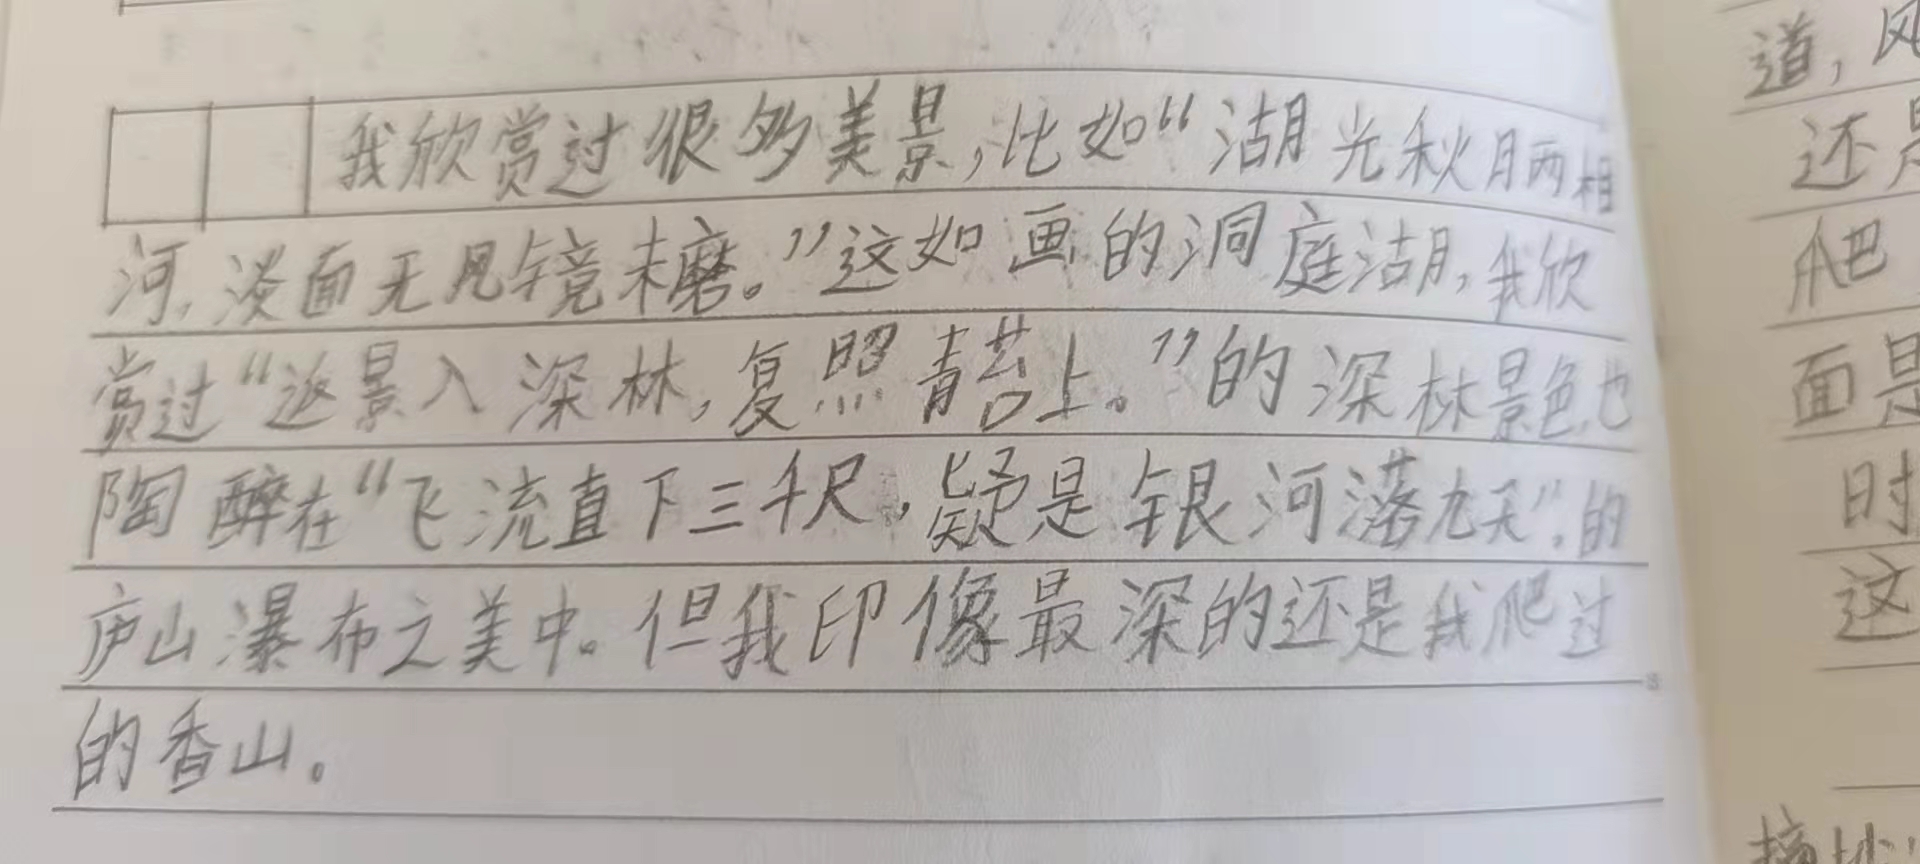 我欣赏过很多美景,比如“湖光秋月两相
河,淡面无风镜未磨。”这如画的洞庭湖,我欣
赏过“返景入深林,复照青苔上。”的深林景色,也
陶醉在“飞流直下三千尺,疑是银河落九天”,的
庐山瀑布之美中。但我印像最深的还是我爬过
的香山。
道,风
还是
爬
面是
时
这
摘抄